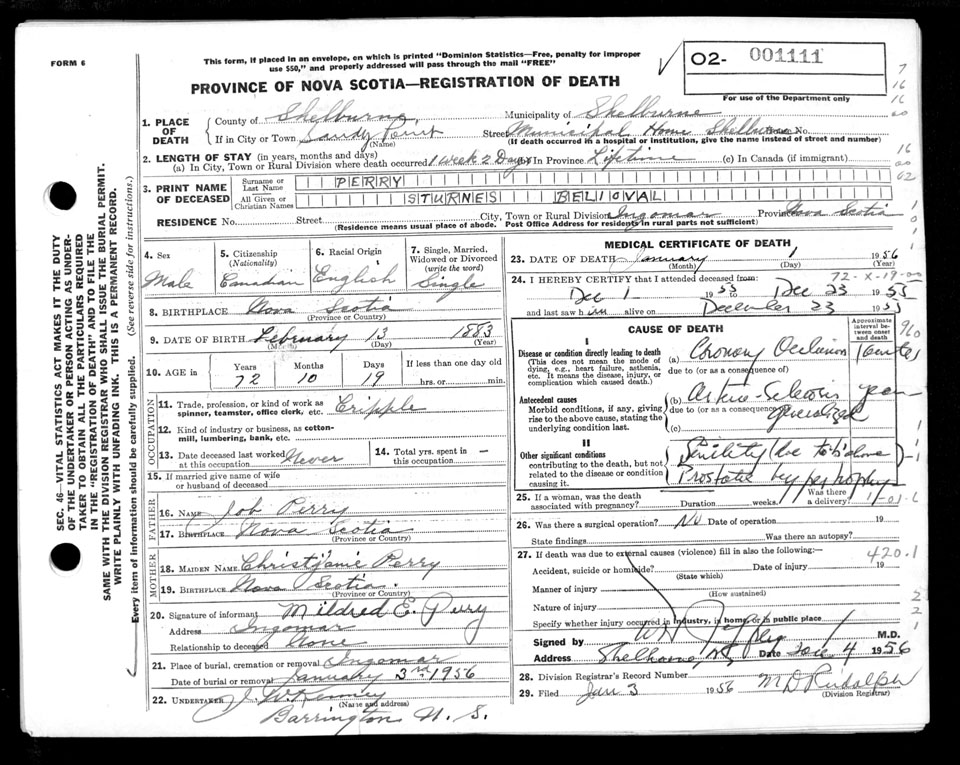 FORM 6
This form, if placed in an envelope, on which is printed "Dominion Statistics—Free, penalty for improper
use $50," and properly addressed will pass through the mail "FREE"
PROVINCE OF NOVA SCOTIA—REGISTRATION OF DEATH
02- 001111
For use of the Department only
1. PLACE OF DEATH
County of Shelburne, Municipality of Shelburne
If in City or Town Sandy Point Street Municipal Home Shelburne No.
(Name) (If death occurred in a hospital or institution, give the name instead of street and number)
2. LENGTH OF STAY (in years, months and days)
(a) In City, Town or Rural Division where death occurred 1 week 2 Days (b) In Province Lifetime (c) In Canada (if immigrant)
3. PRINT NAME OF DECEASED
Surname or Last Name PERRY
All Given or Christian Names STURNES BELIOVAL
RESIDENCE No. Street City, Town or Rural Division Ingomar Province Nova Scotia
(Residence means usual place of abode. Post Office Address for residents in rural parts not sufficient)
4. Sex Male
5. Citizenship (Nationality) Canadian
6. Racial Origin English
7. Single, Married, Widowed or Divorced (write the word) Single
8. BIRTHPLACE Nova Scotia
(Province or Country)
9. DATE OF BIRTH February 13 1883
(Month) (Day) (Year)
10. AGE in Years 72 Months 10 Days 19 If less than one day old hrs. or min.
OCCUPATION
11. Trade, profession, or kind of work as spinner, teamster, office clerk, etc. Cripple
12. Kind of industry or business, as cotton-mill, lumbering, bank, etc.
13. Date deceased last worked at this occupation Never
14. Total yrs. spent in this occupation. —
15. If married give name of wife or husband of deceased
FATHER
16. NAME Job Perry
17. BIRTHPLACE Nova Scotia
(Province or Country)
MOTHER
18. MAIDEN NAME Christjanie Perry
19. BIRTHPLACE Nova Scotia.
(Province or Country)
20. Signature of informant Mildred E. Perry
Address Ingomar
Relationship to deceased None
21. Place of burial, cremation or removal Ingomar
Date of burial or removal January 3rd 1956
22. UNDERTAKER J. W. Kenney
(Name and address)
Barrington N. S.
MEDICAL CERTIFICATE OF DEATH
23. DATE OF DEATH January 1 1956
(Month) (Day) (Year)
72-X-19-00
24. I HEREBY CERTIFY that I attended deceased from:
Dec 1 1955 to Dec 23 1955
and last saw him alive on December 23 1955
CAUSE OF DEATH
Approximate interval between onset and death
I
Disease or condition directly leading to death
(This does not mean the mode of dying, e.g., heart failure, asthenia, etc. It means the disease, injury, or complication which caused death.)
(a) Coronary Occlusion
due to (or as a consequence of)
Antecedent causes
Morbid conditions, if any, giving rise to the above cause, stating the underlying condition last.
(b)
due to (or as a consequence of) generalized
(c)
II
Other significant conditions
contributing to the death, but not related to the disease or condition causing it.
Senility
Prostatic hypertrophy
25. If a woman, was the death associated with pregnancy? Duration weeks. Was there a delivery?
26. Was there a surgical operation? No Date of operation 19
State findings Was there an autopsy?
27. If death was due to external causes (violence) fill in also the following:— 420.1
Accident, suicide or homicide? Date of injury 19
(State which)
Manner of injury
(How sustained)
Nature of injury
Specify whether injury occurred in industry, in home, or in public place
Signed by M.D.
Address Shelburne, NS Date Jan 4 1956
28. Division Registrar's Record Number
29. Filed Jan 3 1956 M D Rudolph
(Division Registrar)
SEC. 46—VITAL STATISTICS ACT MAKES IT THE DUTY
OF THE UNDERTAKER OR PERSON ACTING AS UNDER-
TAKER TO OBTAIN ALL THE PARTICULARS REQUIRED
IN THE "REGISTRATION OF DEATH" AND TO FILE THE
SAME WITH THE DIVISION REGISTRAR WHO SHALL ISSUE THE BURIAL PERMIT.
WRITE PLAINLY WITH UNFADING INK. THIS IS A PERMANENT RECORD.
Every item of information should be carefully supplied. (See reverse side for instructions.)